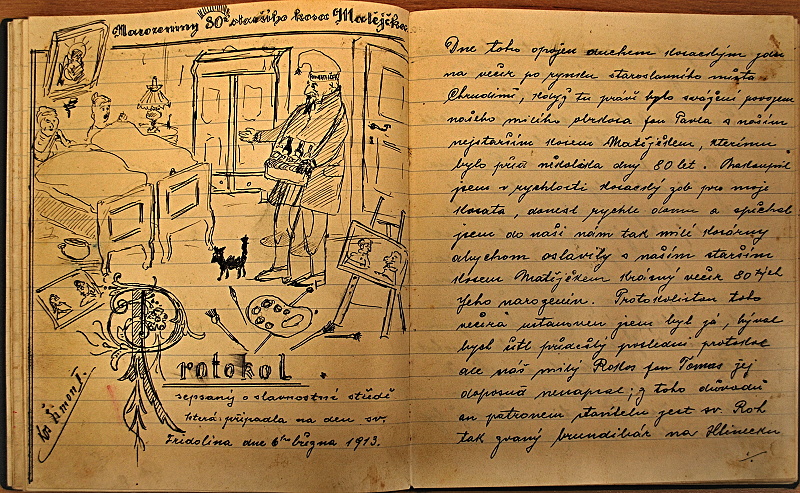 Narozeniny 80ti staršího kosa Matějčka
Protokol
sepsaný o slavnostní středě
která připadla na den sv.
Fridolína dne 6ho března 1913.
Kos Šimon I.
Dne toho opojen duchem kosackým jdu
na večír po rynku staroslavního města
Chrudimě, když tu práví bylo svážení povojem
našeho milého obrkosa fon Pavla s naším
nejstarším kosem Matějčkem, kterému
bylo před několika dny 80 let. Nakoupil
jsem v rychlosti kosacký zob pro moje
kosata, donesl rychle domu a spěchal
jsem do naší nám tak milé kosárny
abychom oslavily s naším starším
kosem Matějčkem krásný večír 80tých
jeho narozenin. Protokolistou toho
večera ustanoven jsem byl já, býval
bych ctil předešlý poslední protokol
ale náš milý Rokos fon Tomas jej
doposud nenapsal; z toho důvodu
an patronem stavitelu jest sv. Roh
tak zvaný brundibár na Hlinecku
./.